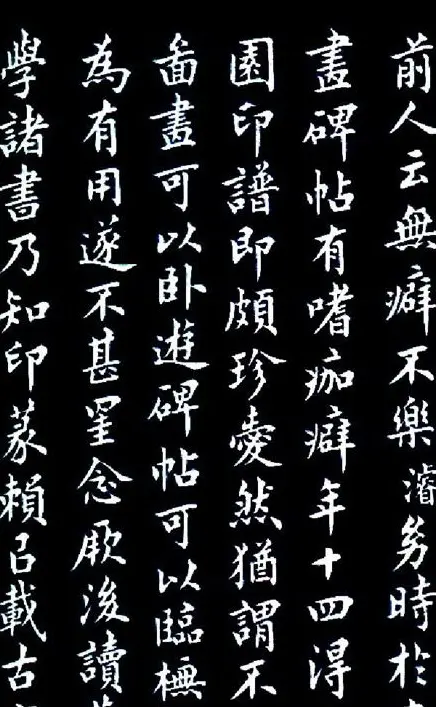 前人云無癖不樂濬㓜時於
畫碑帖有嗜痂癖年十四得
園印譜即頗珍愛然猶謂不
畫可以臥遊碑帖可以臨橅
為有用遂不甚罣念厥後讀
學諸書乃知印篆賴㠯載古